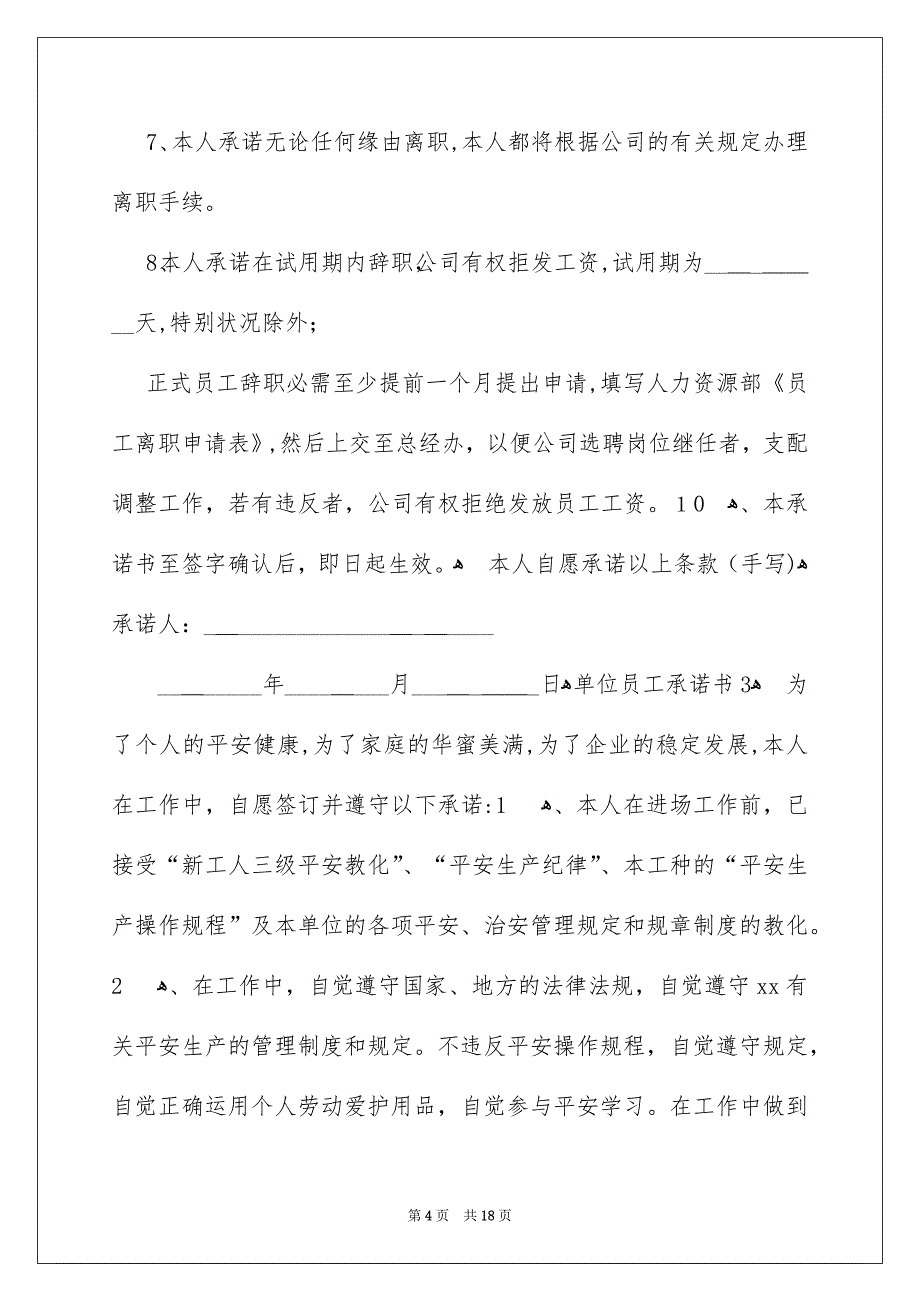 7、本人承诺无论任何缘由离职,本人都将根据公司的有关规定办理
离职手续。
8、本人承诺在试用期内辞职,公司有权拒发工资,试用期为_________
__天,特别状况除外;
正式员工辞职必需至少提前一个月提出申请,填写人力资源部《员
工离职申请表》,然后上交至总经办，以便公司选聘岗位继任者，支配
调整工作，若有违反者，公司有权拒绝发放员工工资。10 ﻫ、本承
诺书至签字确认后，即日起生效。ﻫ 本人自愿承诺以上条款（手写)ﻫ
承诺人：_________________________
_________年_________月___________日ﻫ单位员工承诺书3 ﻫ 为
了个人的平安健康,为了家庭的华蜜美满,为了企业的稳定发展,本人
在工作中，自愿签订并遵守以下承诺:1 ﻫ、本人在进场工作前，已
接受“新工人三级平安教化”、“平安生产纪律”、本工种的“平安生
产操作规程”及本单位的各项平安、治安管理规定和规章制度的教化。
2 ﻫ、在工作中，自觉遵守国家、地方的法律法规，自觉遵守xx有
关平安生产的管理制度和规定。不违反平安操作规程，自觉遵守规定，
自觉正确运用个人劳动爱护用品，自觉参与平安学习。在工作中做到
第4页 共18页